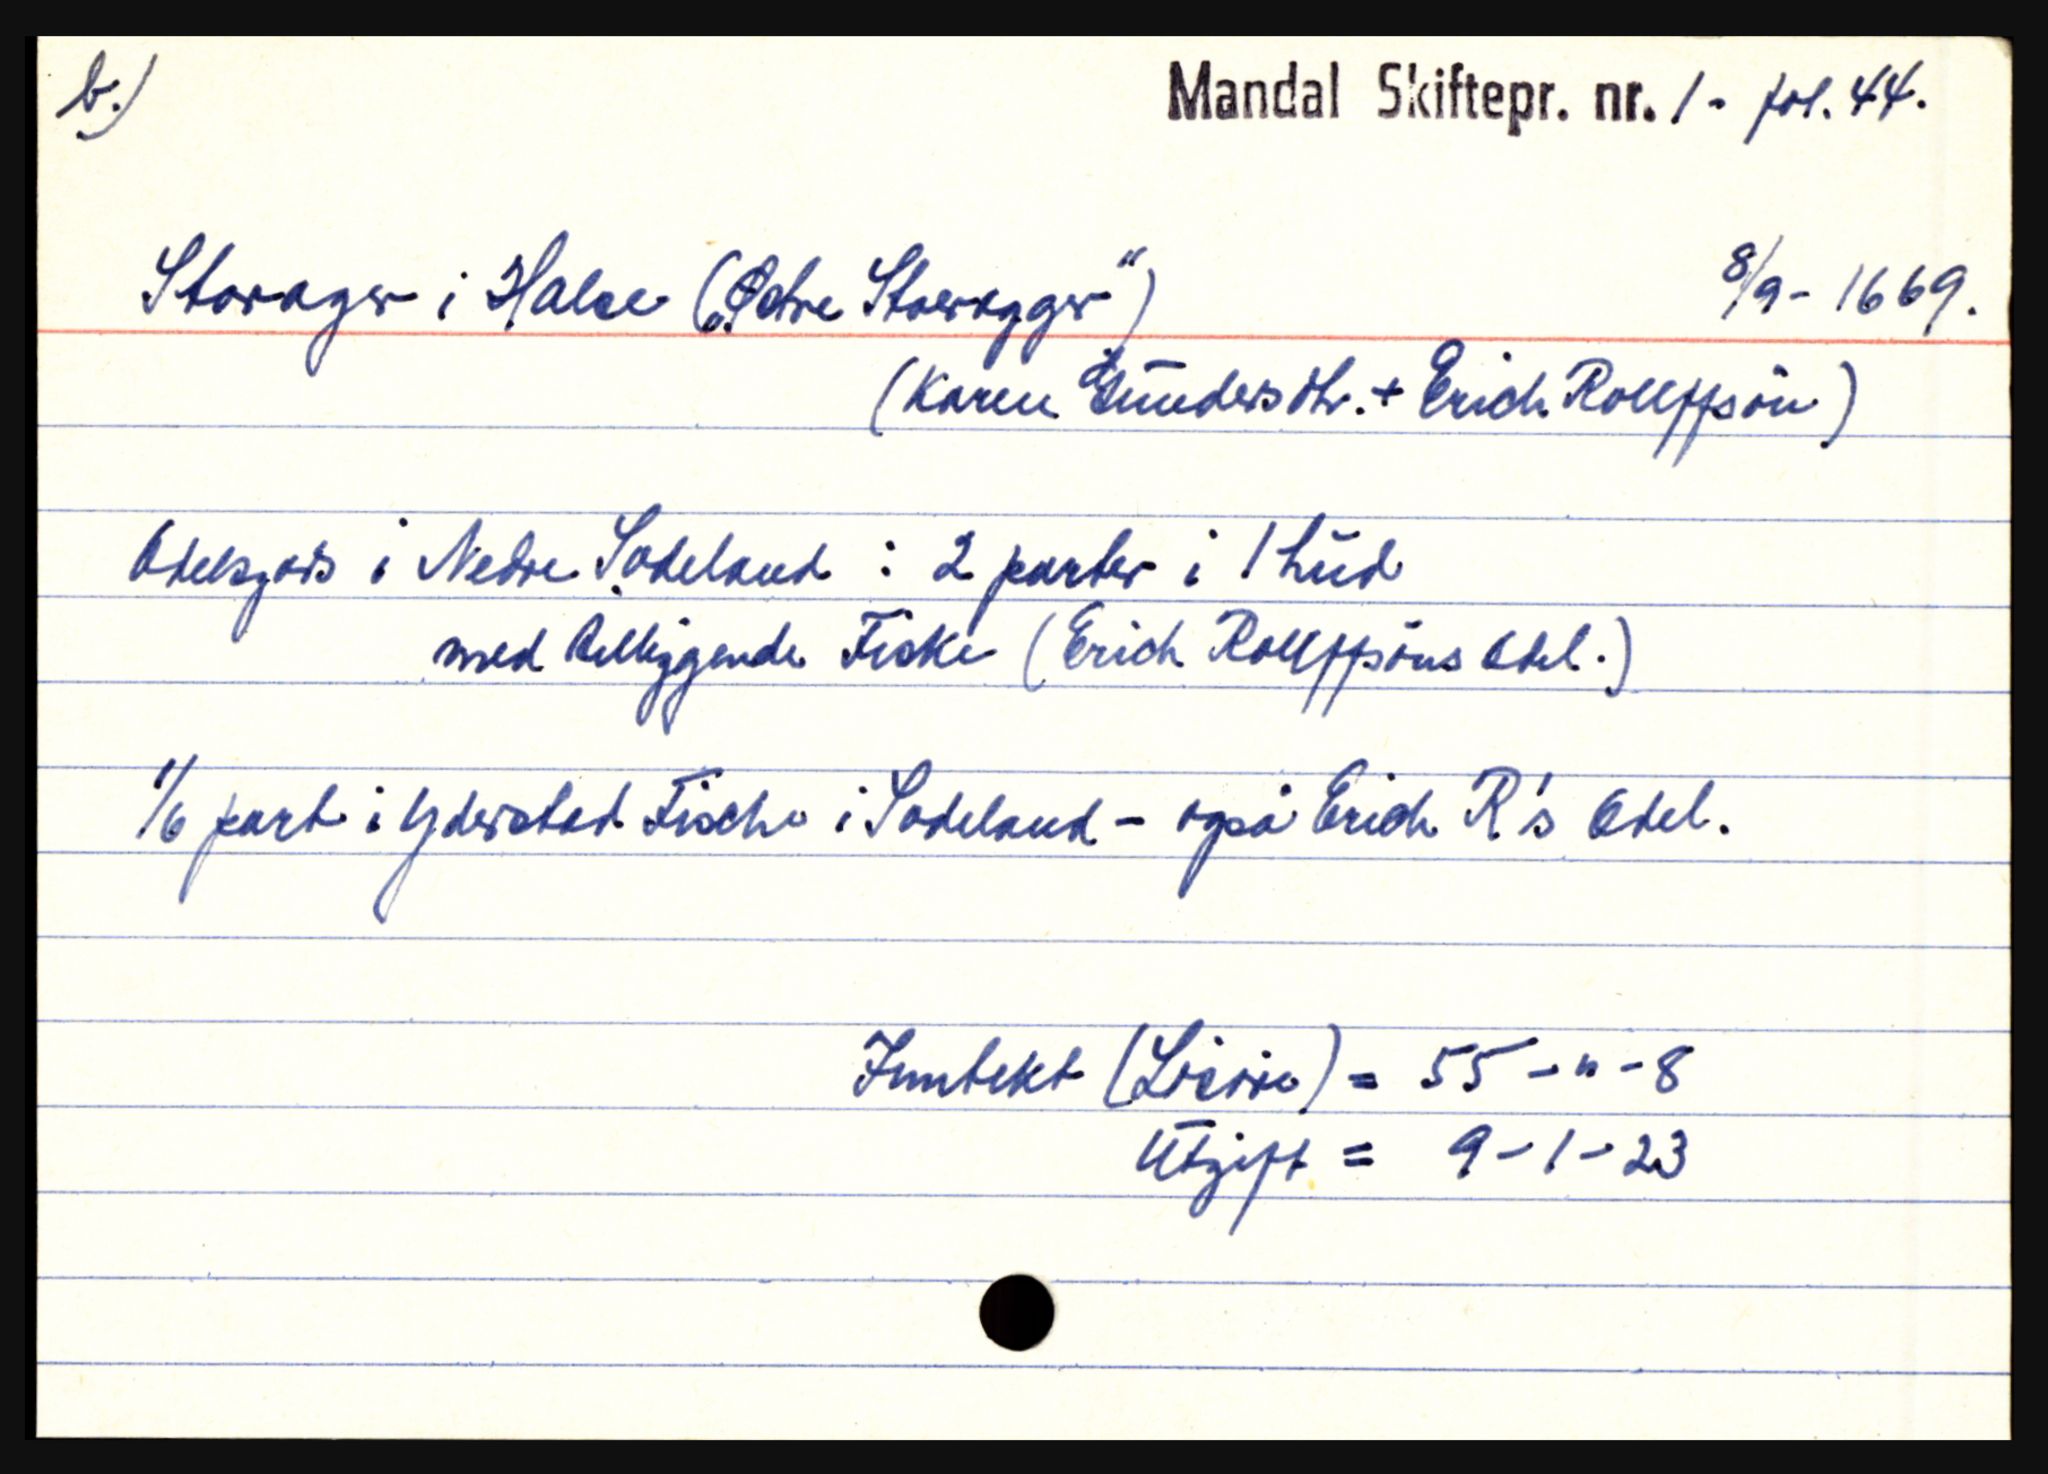 b.)
Mandal Skiftepr. nr. 1 - fol. 44.
Storager i Halse („Østre Storagger“) 8/9 - 1669.
(Karen Gundersdtr. + Erich Rollffsön)
Odelsgods i Nedre Sodeland : 2 parter i 1 hud
med Fiske (Erich Rollffsöns Odel.)
1/6 part i Yderstad Fische i Sodeland - også Erich R's Odel.
Inntekt (Lösöre) = 55 - " - 8
Utgift = 9 - 1 - 23